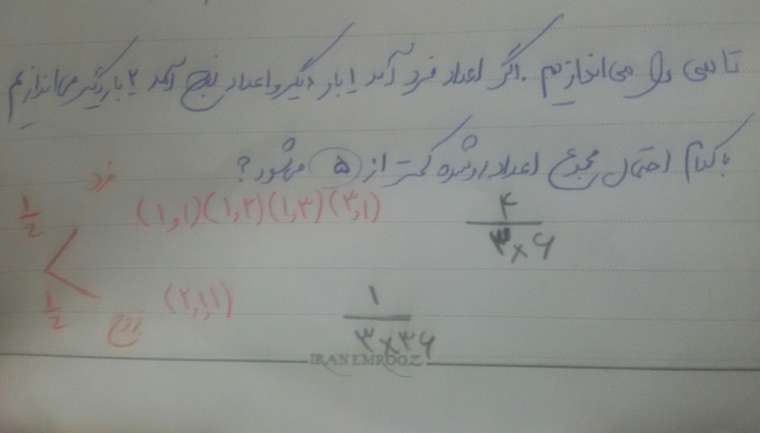 تاسی را می‌اندازیم. اگر اعداد فرد آمد ۱ بار دیگر و اعداد زوج آمد ۲ بار دیگر می‌اندازیم
با کدام احتمال مجموع اعداد رو شده کمتر از ۵ می‌شود؟
فرد
1/2 (۱,۱)(۱,۲)(۱,۳)(۳,۱) ۴/۳×۶
1/2 زوج (۲,۱,۱) ۱/۳×۳۶
IRAN EMROOZ